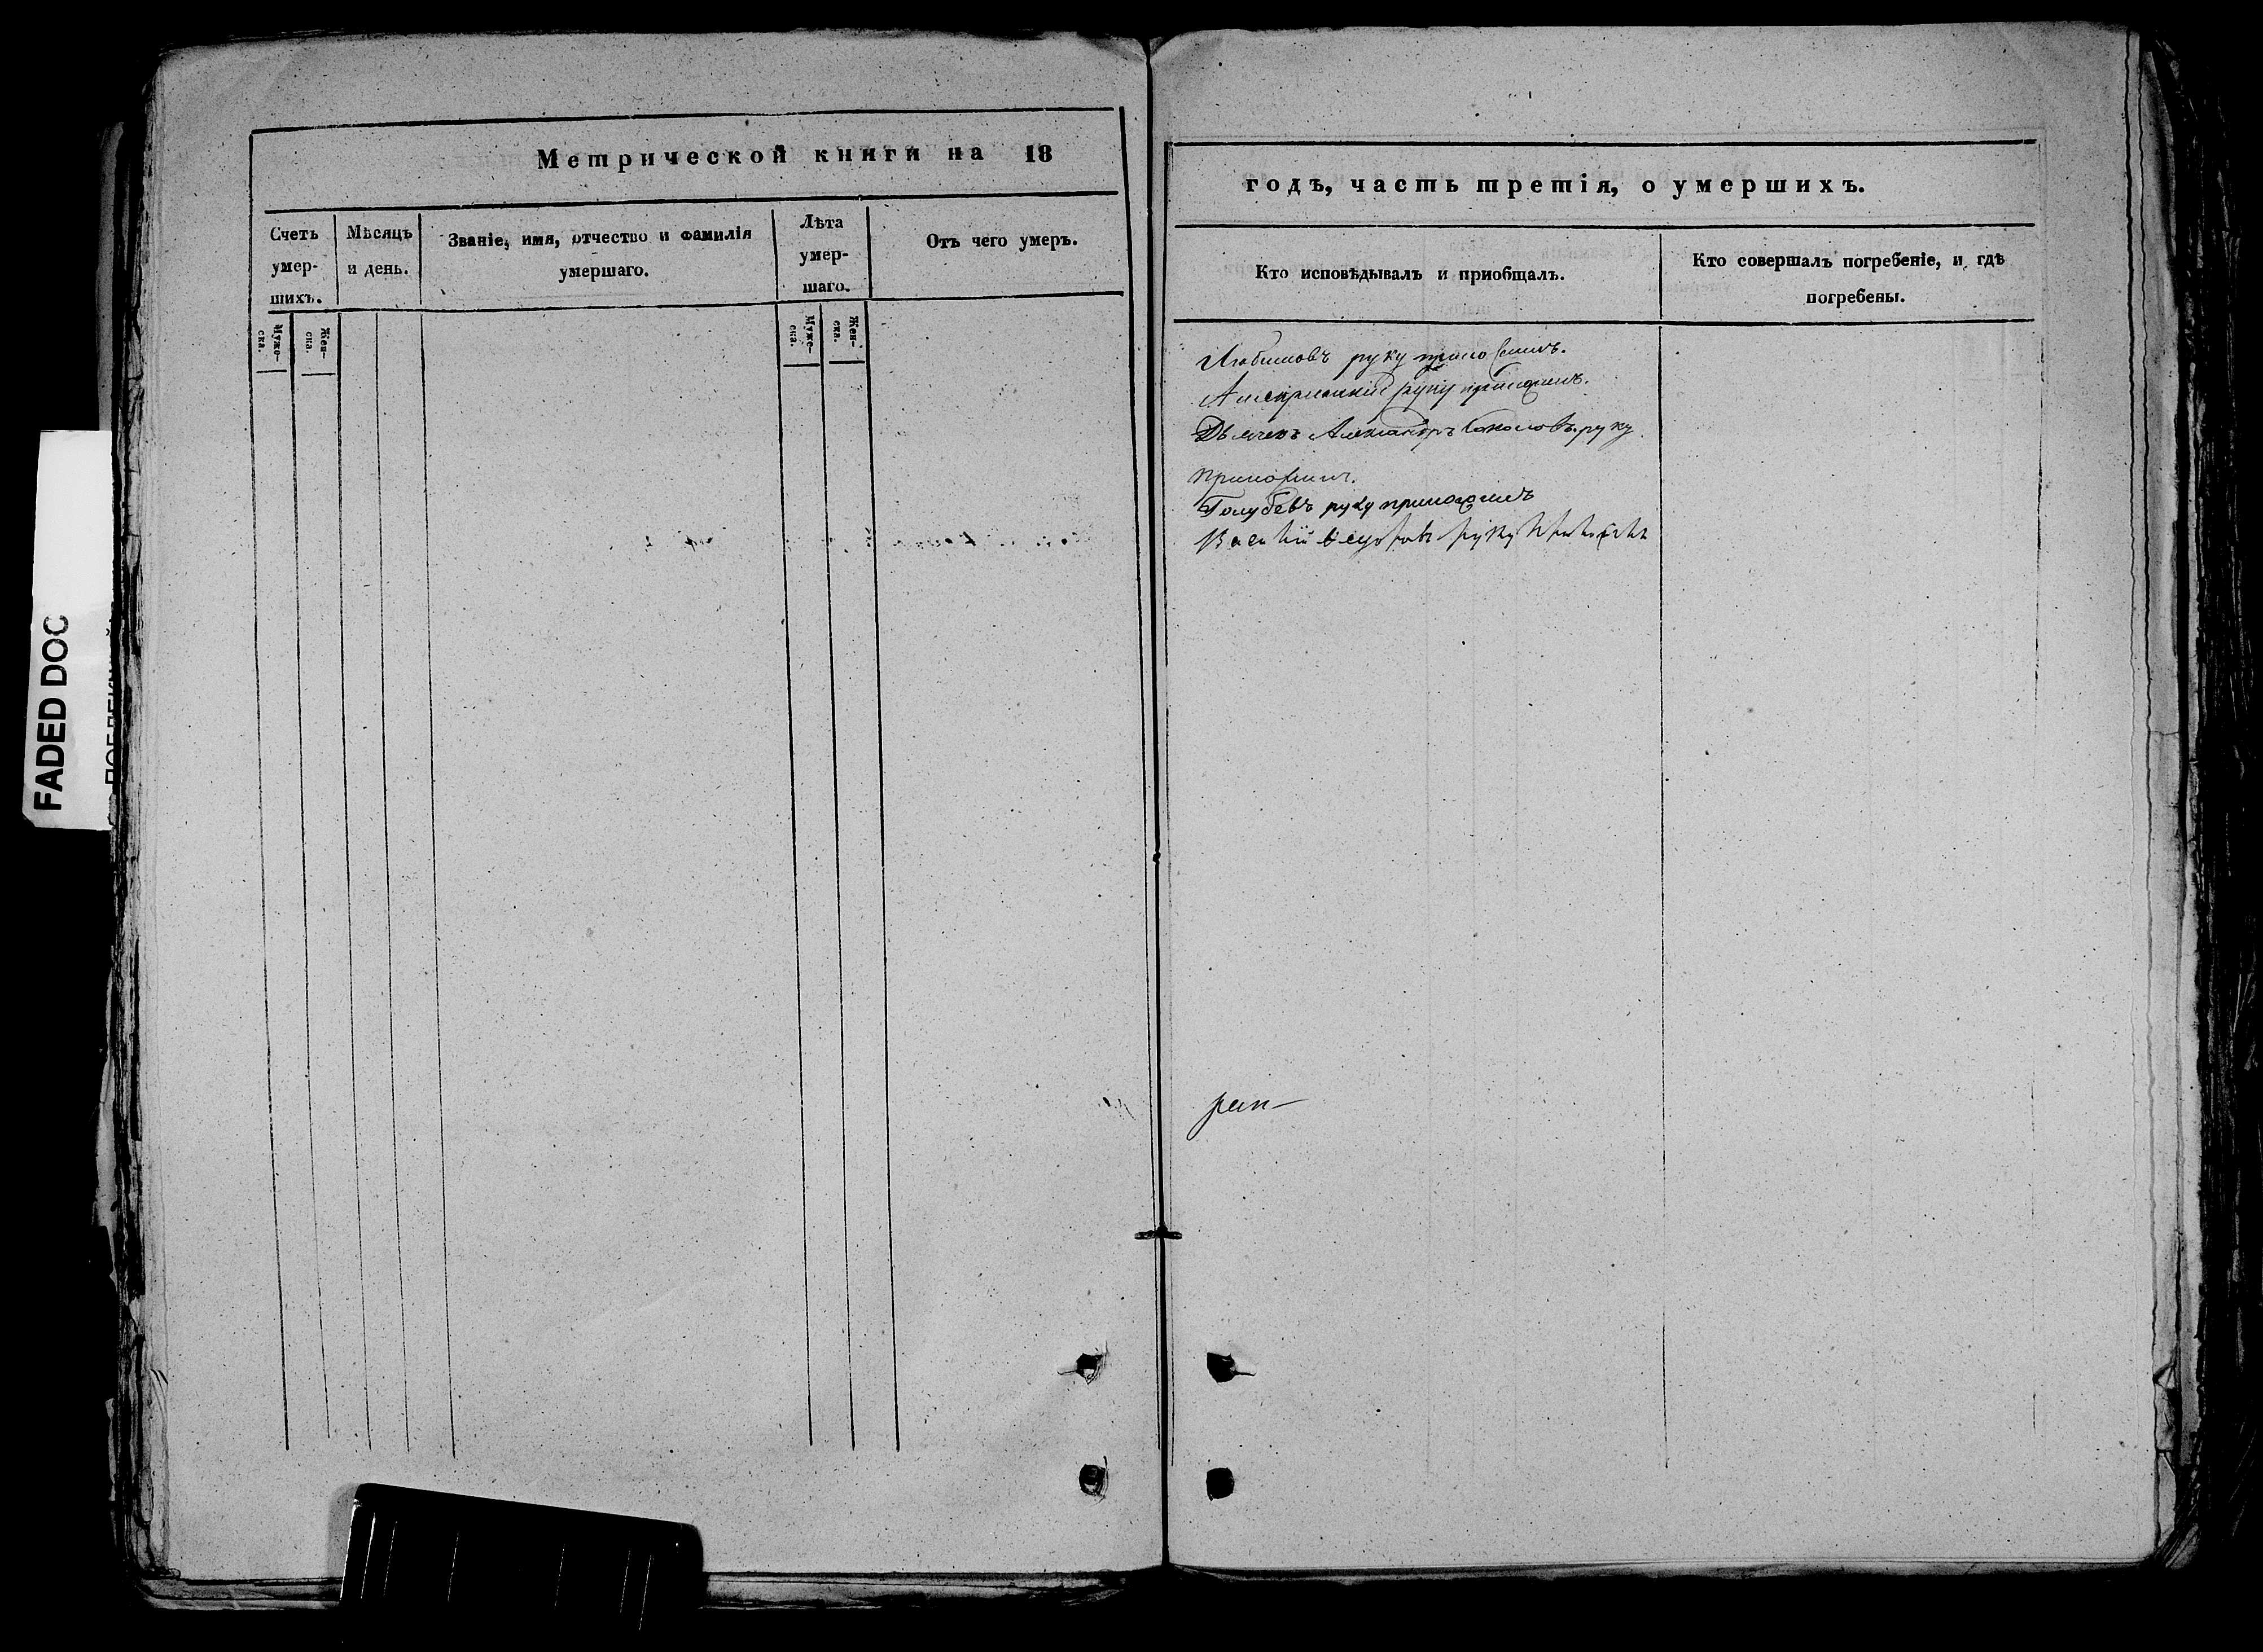 FADED DOC
Метрической книги на 18
Счетъ
умер-
шихъ.
Мѣсяцъ
и день.
Званіе, имя, отчество и фамилія
умершаго.
Лѣта
умер-
шаго.
Отъ чего умеръ.
Муже-
ска.
Жен-
ска.
Муже-
ска.
Жен-
ска.
годъ, часть третія, о умершихъ.
Кто исповѣдывалъ и приобщалъ.
Кто совершалъ погребеніе, и гдѣ
погребены.
Любимовъ руку приложилъ.
руку приложилъ.
Дьячекъ Александръ Соколовъ руку
приложилъ.
Голубевъ руку приложилъ
руку приложилъ